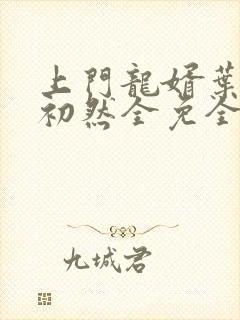 上門龍婿葉
初然全免全
九城君